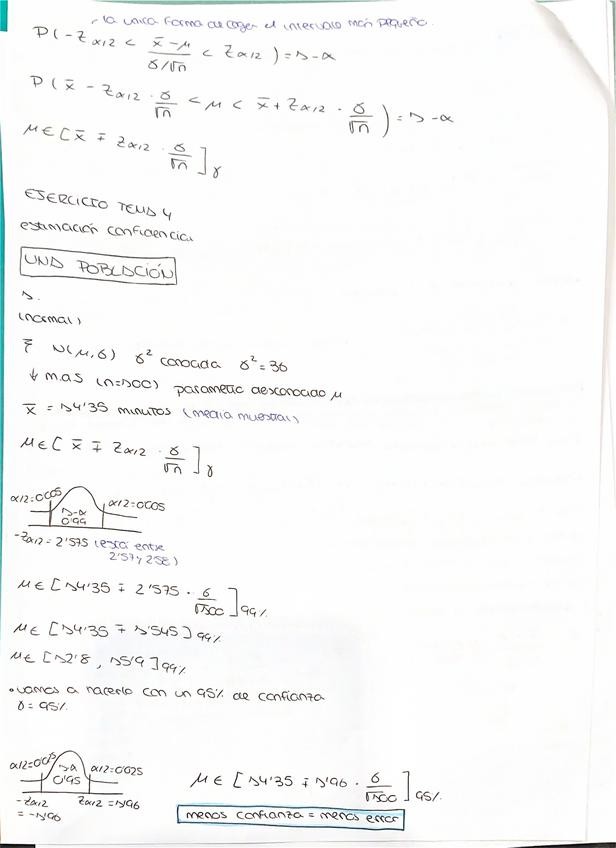 la unica forma de coger el intervalo más pequeño.
P(-Zα/2 < (x̄-μ)/(σ/√n) < Zα/2) = 1-α
P(x̄ - Zα/2 · σ/√n < μ < x̄ + Zα/2 · σ/√n) = 1-α
μ ∈ [x̄ ∓ Zα/2 · σ/√n]γ
EJERCICIO TEMA 4
estimación confidencial
UNA POBLACIÓN
1.
(normal)
N(μ, σ) σ² conocida σ² = 36
↓ m.a.s (n=100) parametro desconocido μ
x̄ = 14'35 minutos (media muestral)
μ ∈ [x̄ ∓ Zα/2 · σ/√n]γ
α/2=0'005 1-α 0'99 α/2=0'005
-Zα/2 = 2'575 (está entre
2'57 y 2'58)
μ ∈ [14'35 ∓ 2'575 · 6/√100]99%
μ ∈ [14'35 ∓ 1'545]99%
μ ∈ [12'8, 15'9]99%
• vamos a hacerlo con un 95% de confianza
γ = 95%
α/2=0'025 1-α 0'95 α/2=0'025
-Zα/2 Zα/2 = 1'96
= -1'96
μ ∈ [14'35 ∓ 1'96 · 6/√100]95%
menos confianza = menos error